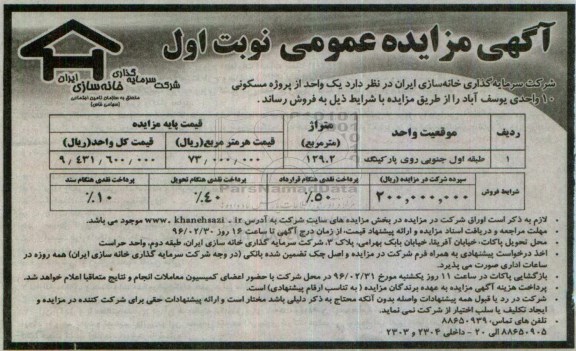 آگهی مزایده عمومی نوبت اول
شرکت سرمایه گذاری
خانه سازی ایران
متعلق به سازمان تامین اجتماعی
(سهامی خاص)
شرکت سرمایه گذاری خانه سازی ایران در نظر دارد یک واحد از پروژه مسکونی
۱۰ واحدی یوسف آباد را از طریق مزایده با شرایط ذیل به فروش رساند .
ردیف موقعیت واحد متراژ (مترمربع) قیمت پایه مزایده
قیمت هرمتر مربع(ریال) قیمت کل واحد(ریال)
۱ طبقه اول جنوبی روی پارکینگ ۱۲۹.۲ ۷۳٫۰۰۰٫۰۰۰ ۹٫۴۳۱٫۶۰۰٫۰۰۰
شرایط فروش سپرده شرکت در مزایده (ریال) پرداخت نقدی هنگام قرارداد پرداخت نقدی هنگام تحویل پرداخت نقدی هنگام سند
۲۰۰٫۰۰۰٫۰۰۰ ۵۰٪ ۴۰٪ ۱۰٪
ParsNamadData
• لازم به ذکر است اوراق شرکت در مزایده در بخش مزایده های سایت شرکت به آدرس www. khanehsazi . ir موجود می باشد.
• مهلت مراجعه و دریافت اسناد مزایده و ارائه پیشنهاد قیمت، از زمان درج آگهی تا ساعت ۱۶ روز ۹۶/۰۲/۳۰
• محل تحویل پاکات: خیابان آفریقا، خیابان بابک بهرامی، پلاک ۳، شرکت سرمایه گذاری خانه سازی ایران، طبقه دوم، واحد حراست
• اخذ درخواست پیشنهادی به همراه فرم شرکت در مزایده و اصل چک تضمین شده بانکی (در وجه شرکت سرمایه گذاری خانه سازی ایران) همه روزه در
ساعات اداری صورت می پذیرد.
• بازگشایی پاکات در ساعت ۱۱ روز یکشنبه مورخ ۹۶/۰۲/۳۱ در محل شرکت با حضور اعضای کمیسیون معاملات انجام و نتایج متعاقبا اعلام خواهد شد.
• پرداخت هزینه آگهی مزایده به عهده برندگان مزایده ( به تناسب ارقام پیشنهادی) است.
• شرکت در رد یا قبول همه پیشنهادات واصله بدون آنکه محتاج به ذکر دلیلی باشد مختار است و ارائه پیشنهادات حقی برای شرکت کننده در مزایده و
ایجاد تکلیف یا سلب اختیار از شرکت نمی نماید.
• تلفن های تماس: ۸۸۶۵۰۹۳۹
۸۸۶۵۰۹۰۵ الی ۲۰ - داخلی ۲۳۰۴ و ۲۳۰۳